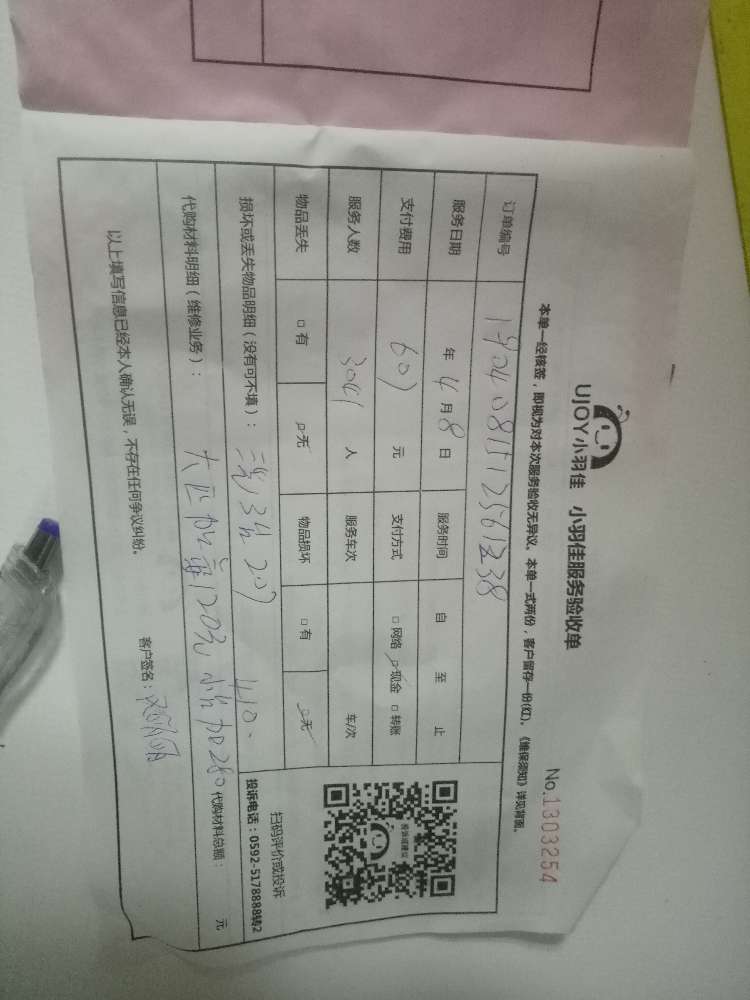 UJOY小羽佳 小羽佳服务验收单
No.1303254
本单一经核签，即视为对本次服务验收无异议。本单一式两份，客户留存一份(红)。《维保须知》详见背面。
订单编号
服务日期 年 4 月 8 日 服务时间 自 至 止
支付费用 607 元 支付方式 □网络 □现金 □转账
服务人数 人 服务车次 车/次
物品丢失 □有 □无 物品损坏 □有 □无
损坏或丢失物品明细（没有可不填）： 207 410
代购材料明细（维修业务）： 大匹加 120元 小 加280 代购材料总额： 元
扫码评价或投诉
投诉电话：0592-5178888转2
以上填写信息已经本人确认无误，不存在任何争议纠纷。
客户签名：